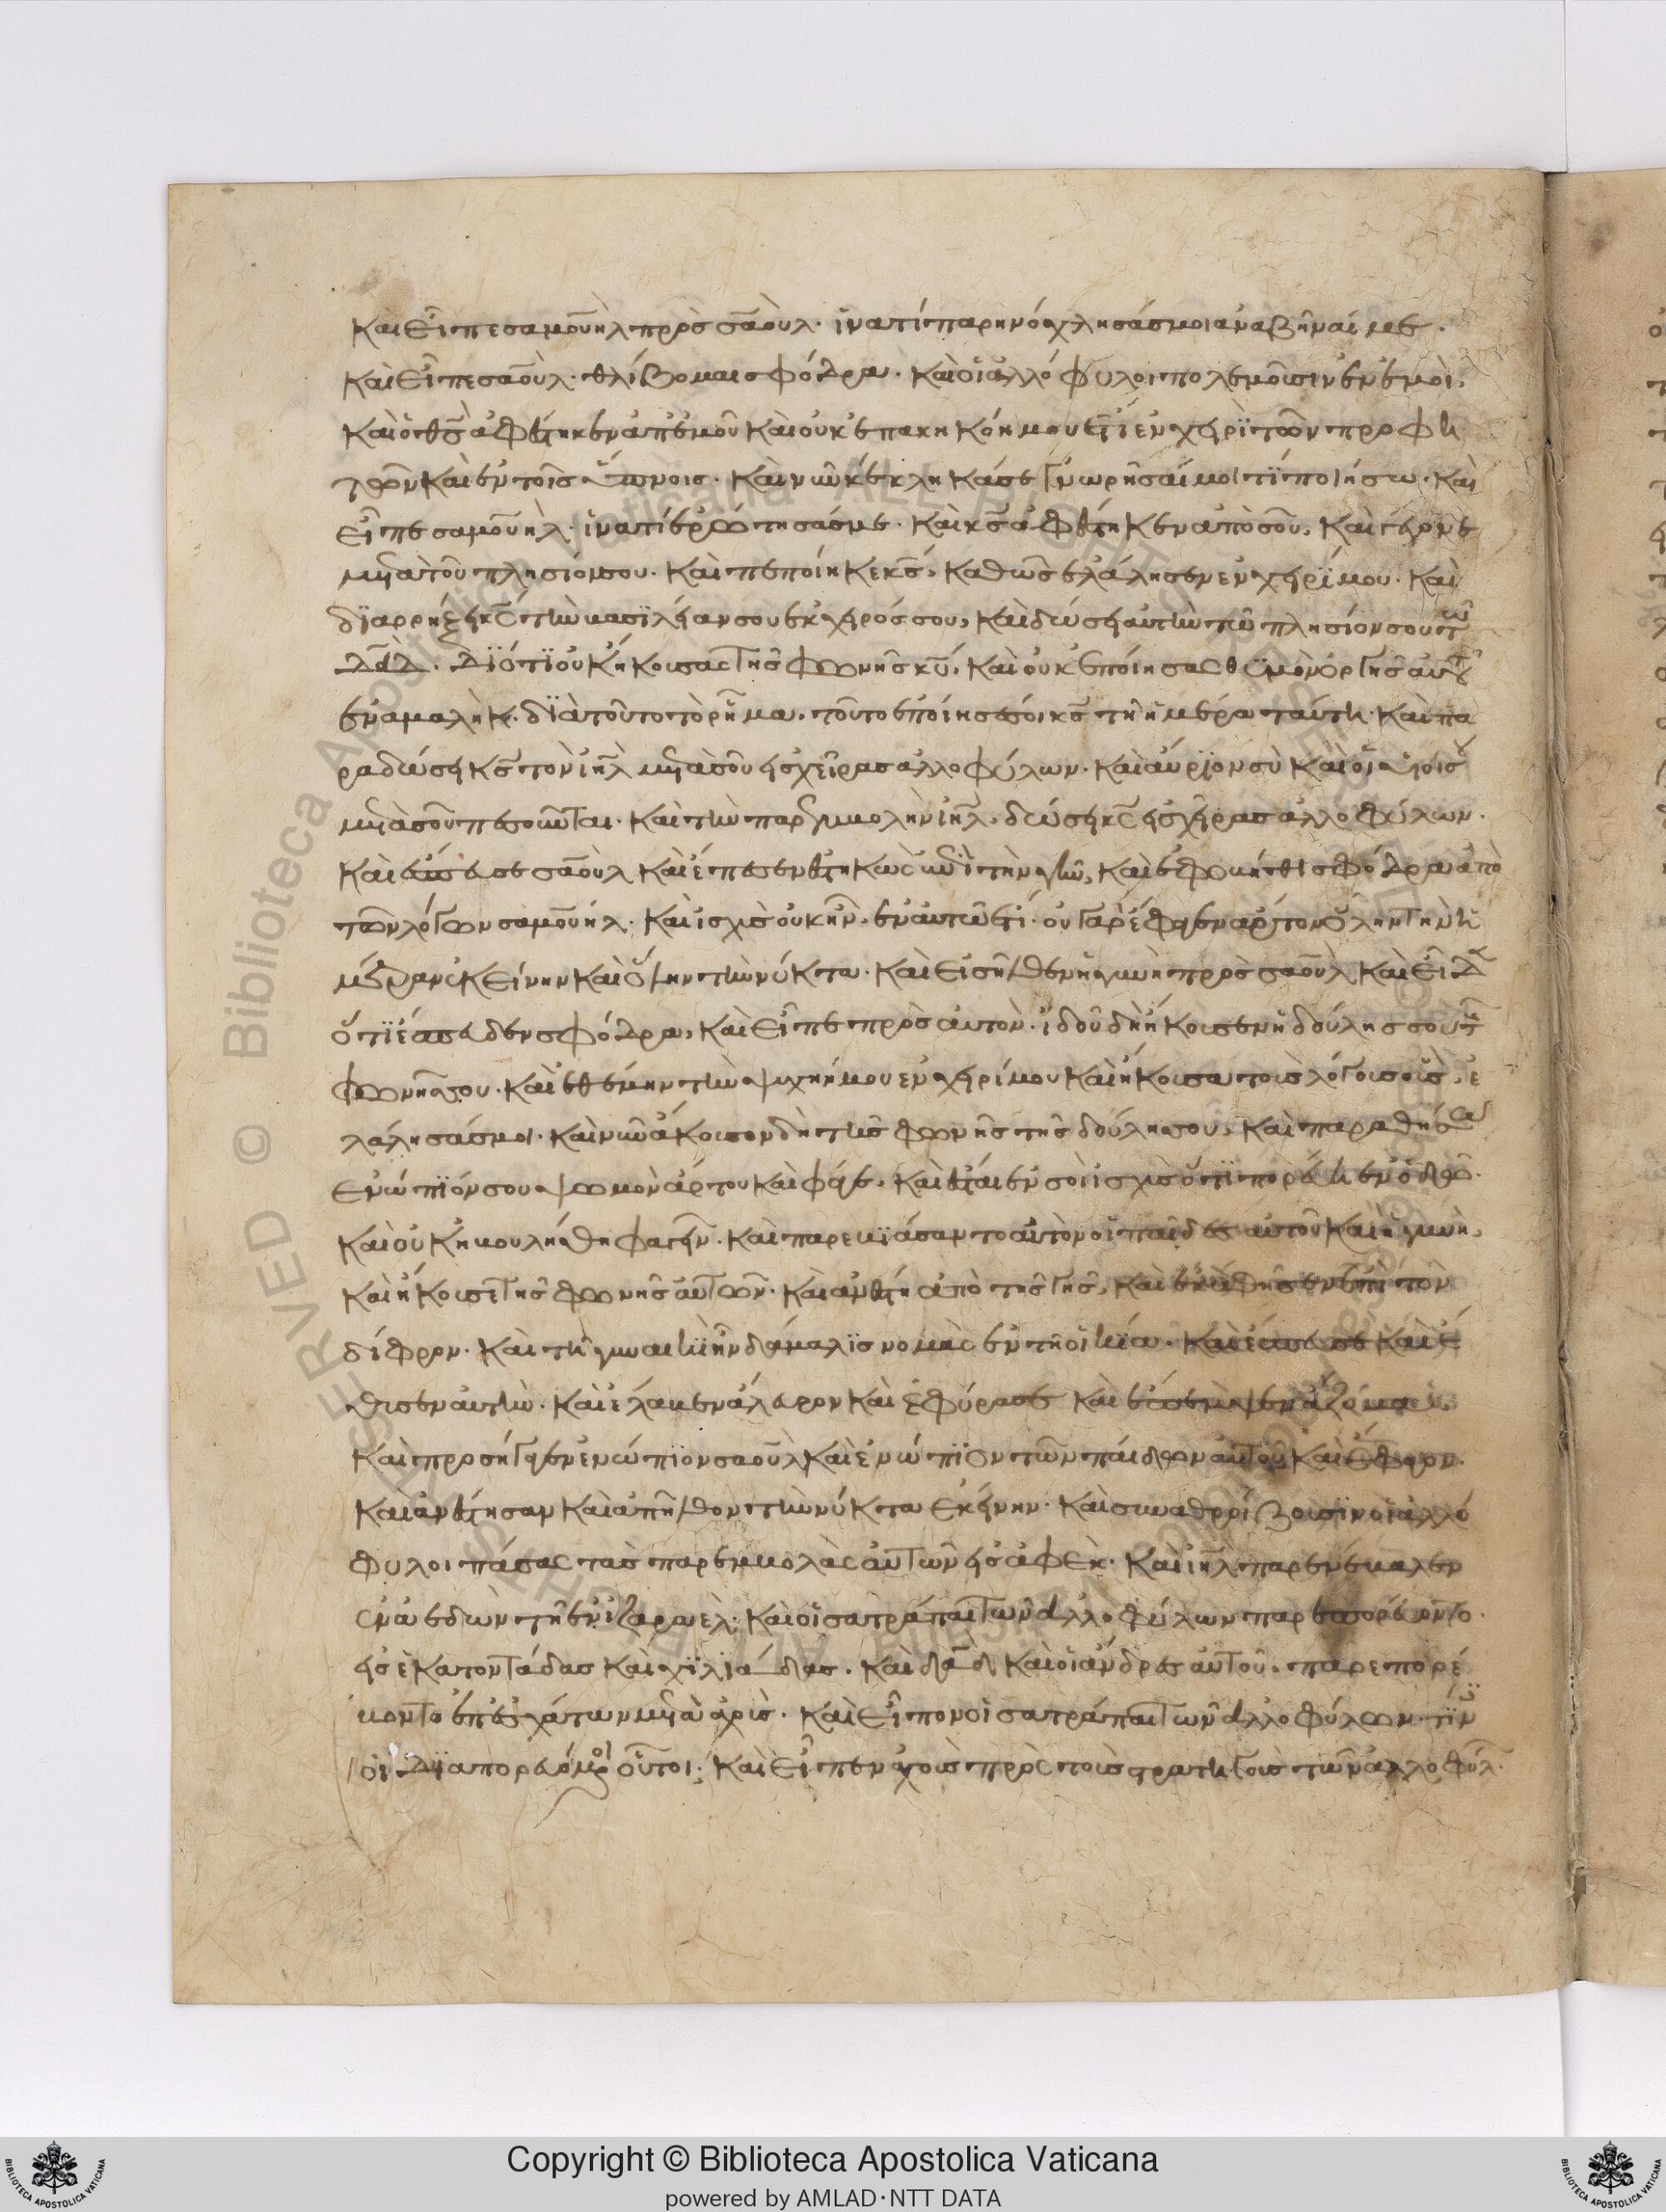 Και εἶπε σαμουὴλ πρὸς σαούλ· ἱνατί παρηνόχλησάς μοι ἀναβῆναί με·
Καὶ εἶπε σαούλ· θλίβομαι σφόδρα· καὶ οἱ ἀλλόφυλοι πολεμοῦσιν ἐν ἐμοὶ,
καὶ ὁ θς ἀφέστηκεν ἀπ' ἐμοῦ καὶ οὐκ ἐπακήκοή μου ἔτι ἐν χειρὶ τῶν προφη
τῶν καὶ ἐν τοῖς ὕπνοις· καὶ νῦν κέκληκά σε γνωρῆσαί μοι τί ποιήσω· καὶ
εἶπε σαμουὴλ· ἱνατί ἐρώτησάς με· καὶ κς ἀφέστηκεν ἀπὸ σοῦ, καὶ γέγονε
μετὰ τοῦ πλησίον σου· καὶ πεποίηκε κς, καθὼς ἐλάλησεν ἐν χειρί μου· καὶ
διαρρήξει κς τὴν βασιλείαν σου ἐκ χειρός σου, καὶ δώσει αὐτὴν τῶ πλησίον σου τῶ
δαδ. Διότι οὐκ ἤκουσας τῆς φωνῆς κυ, καὶ οὐκ ἐποίησας θυμὸν ὀργῆς αὐτοῦ
ἐν ἀμαλὴκ· διὰ τοῦτο τὸ ῥῆμα τοῦτο ἐποίησέ σοι κς τῆ ἡμέρα ταύτη· καὶ πα
ραδώσει κς τὸν ιηλ μετὰ σοῦ εἰς χεῖρας ἀλλοφύλων· καὶ αὔριον σὺ καὶ οἱ υἱοί σου
μετὰ σοῦ πεσοῦνται· καὶ τὴν παρεμβολὴν ιηλ, δώσει κς εἰς χεῖρας ἀλλοφύλων.
Καὶ ἔσπευσε σαοὺλ καὶ ἔπεσεν ἑστηκὼς ἐπὶ τὴν γῆν, καὶ ἐφοβήθη σφόδρα ἀπὸ
τῶν λόγων σαμουήλ· καὶ ἰσχὺς οὐκ ἦν ἐν αὐτῶ ἔτι· οὐ γὰρ ἔφαγεν ἄρτον ὅλην τὴν ἡ
μέραν ἐκείνην καὶ ὅλην τὴν νύκτα· καὶ εἰσῆλθεν ἡ γυνὴ πρὸς σαοὺλ καὶ εἶδεν
ὅτι ἔσπευδεν σφόδρα, καὶ εἶπε πρὸς αὐτὸν· ἰδοῦ δὴ ἤκουσεν ἡ δούλη σου τῆς
φωνῆς σου· καὶ ἐθέμην τὴν ψυχήν μου ἐν χειρί μου καὶ ἤκουσα τοὺς λόγους οὓς ἐ
λάλησάς μοι· καὶ νῦν ἄκουσον δὴ τῆς φωνῆς τῆς δούλης σου, καὶ παραθήσω
ἐνώπιόν σου ψωμὸν ἄρτου καὶ φάγε, καὶ ἔσται ἐν σοὶ ἰσχὺς ὅτι πορεύη ἐν ὁδῶ·
Καὶ οὐκ ἠβουλήθη φαγεῖν· καὶ παρεβιάσαντο αὐτὸν οἱ παῖδες αὐτοῦ καὶ ἡ γυνὴ,
καὶ ἤκουσε τῆς φωνῆς αὐτῶν· καὶ ἀνέστη ἀπὸ τῆς γῆς, καὶ ἐκάθησεν ἐπὶ τὸν
δίφρον· καὶ τῆ γυναικὶ ἦν δάμαλις νομὰς ἐν τῆ οἰκία· καὶ ἔσπευσε καὶ ἔ
θυσεν αὐτὴν· καὶ ἔλαβεν ἄλευρον καὶ ἐφύρασε καὶ ἔπεψεν ἄζυμα·
Καὶ προσήγαγεν ἐνώπιον σαοὺλ καὶ ἐνώπιον τῶν παίδων αὐτοῦ καὶ ἔφαγον.
Καὶ ἀνέστησαν καὶ ἀπῆλθον τὴν νύκτα ἐκείνην· καὶ συναθροίζουσιν οἱ ἀλλό
φυλοι πάσας τὰς παρεμβολὰς αὐτῶν εἰς ἀφὲκ· καὶ ιηλ παρενέβαλεν
ἐν ἀενδὼν τῆ ἐν ἰζαραὲλ· καὶ οἱ σατράπαι τῶν ἀλλοφύλων παρεπορεύοντο
εἰς ἑκατοντάδας καὶ χιλιάδας. καὶ δαδ καὶ οἱ ἄνδρες αὐτοῦ παρεπορεύ
οντο ἐπ' ἐσχάτων μετὰ ἀγχίς· καὶ εἶπον οἱ σατράπαι τῶν ἀλλοφύλων· τίνες
οἱ διαπορευόμενοι οὗτοι; καὶ εἶπεν ἀγχοῦς πρὸς τοὺς στρατηγοὺς τῶν ἀλλοφύλ